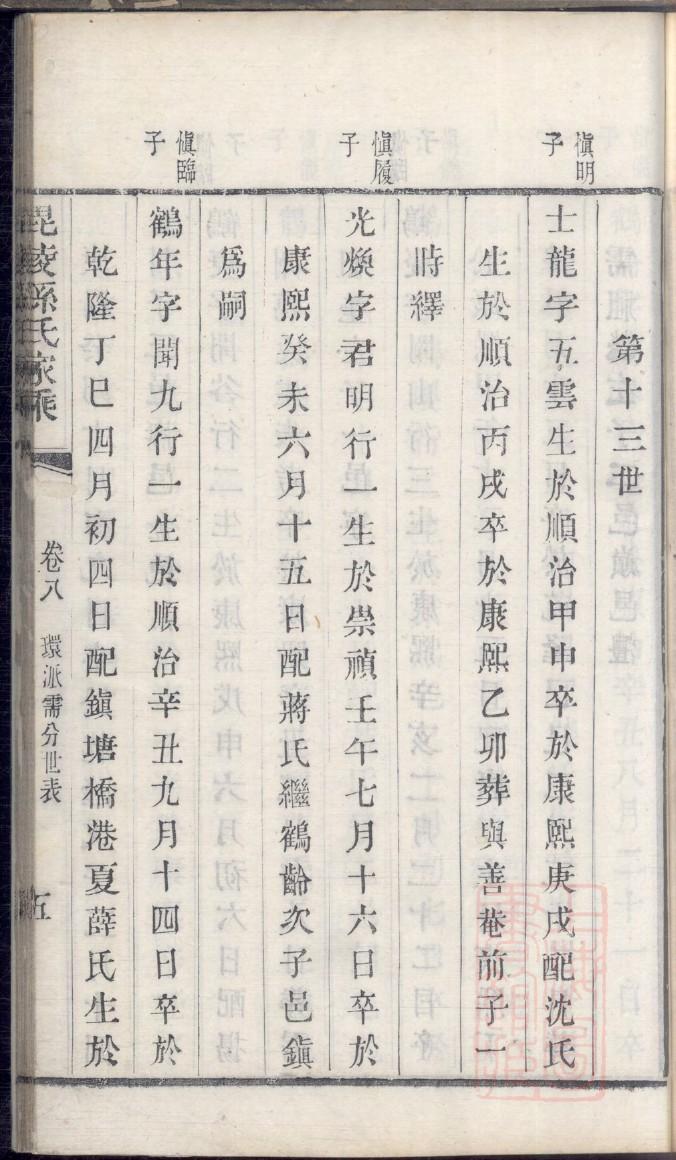 第十三世
慎明子
士龍字五雲生於順治甲申卒於康熙庚戌配沈氏
生於順治丙戌卒於康熙乙卯葬與善菴前子一
時繹
慎履子
光煥字君明行一生於崇禎壬午七月十六日卒於
康熙癸未六月十五日配蔣氏繼鶴齡次子邑鎮
爲嗣
慎臨子
鶴年字聞九行一生於順治辛丑九月十四日卒於
乾隆丁巳四月初四日配鎮塘橋港夏薛氏生於
毘陵孫氏家乘
卷八 環派需分世表
五